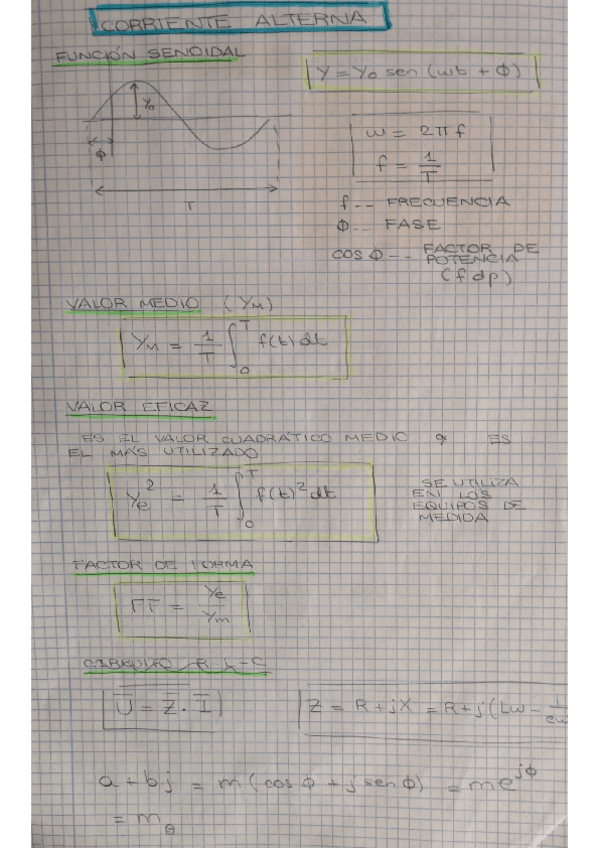 CORRIENTE ALTERNA
FUNCIÓN SENOIDAL
Y = Y₀ sen (wt + ϕ)
Y₀
ϕ
T
w = 2πf
f = 1/T
f -- FRECUENCIA
ϕ -- FASE
COS ϕ -- FACTOR DE
POTENCIA
(fdp)
VALOR MEDIO (YM)
YM = 1/T ∫₀ᵀ f(t) dt
VALOR EFICAZ
ES EL VALOR CUADRÁTICO MEDIO y ES
EL MÁS UTILIZADO
Ye² = 1/T ∫₀ᵀ f(t)² dt
SE UTILIZA
EN LOS
EQUIPOS DE
MEDIDA
FACTOR DE FORMA
= Ye/Ym
CIRCUITO R-L-C
U̅ = Z̅ · I̅
Z = R + jX = R + j(Lw - 1/cw
a + bj = m (cos ϕ + j sen ϕ) = m e^jϕ
= m